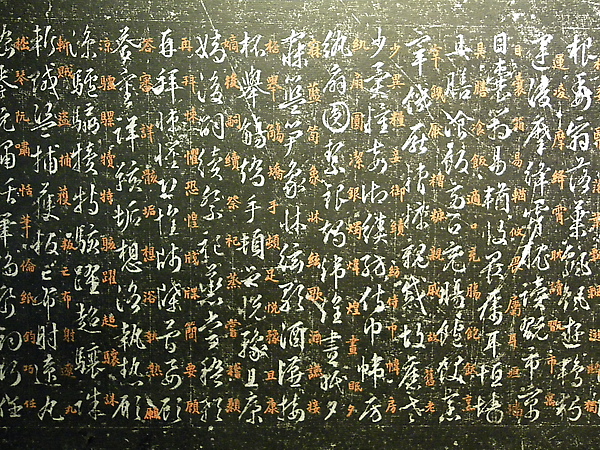 根委翳落葉飄颻遊鵾獨
運凌摩絳霄耽讀翫市寓
目囊箱易輶攸畏屬耳垣墻
具膳飡飯適口充腸飽飫烹
宰飢厭糟糠親戚故舊老
少異糧妾御績紡侍巾帷房
紈扇圓潔銀燭煒煌晝眠夕
寐藍筍象床絃歌酒讌接
杯舉觴矯手頓足悅豫且康
嫡後嗣續祭祀蒸嘗稽顙
再拜悚懼恐惶牋牒簡要顧
答審詳骸垢想浴執熱願
涼驢騾犢特駭躍超驤誅
斬賊盜捕獲叛亡布射遼丸
嵇琴阮嘯恬筆倫紙鈞巧任